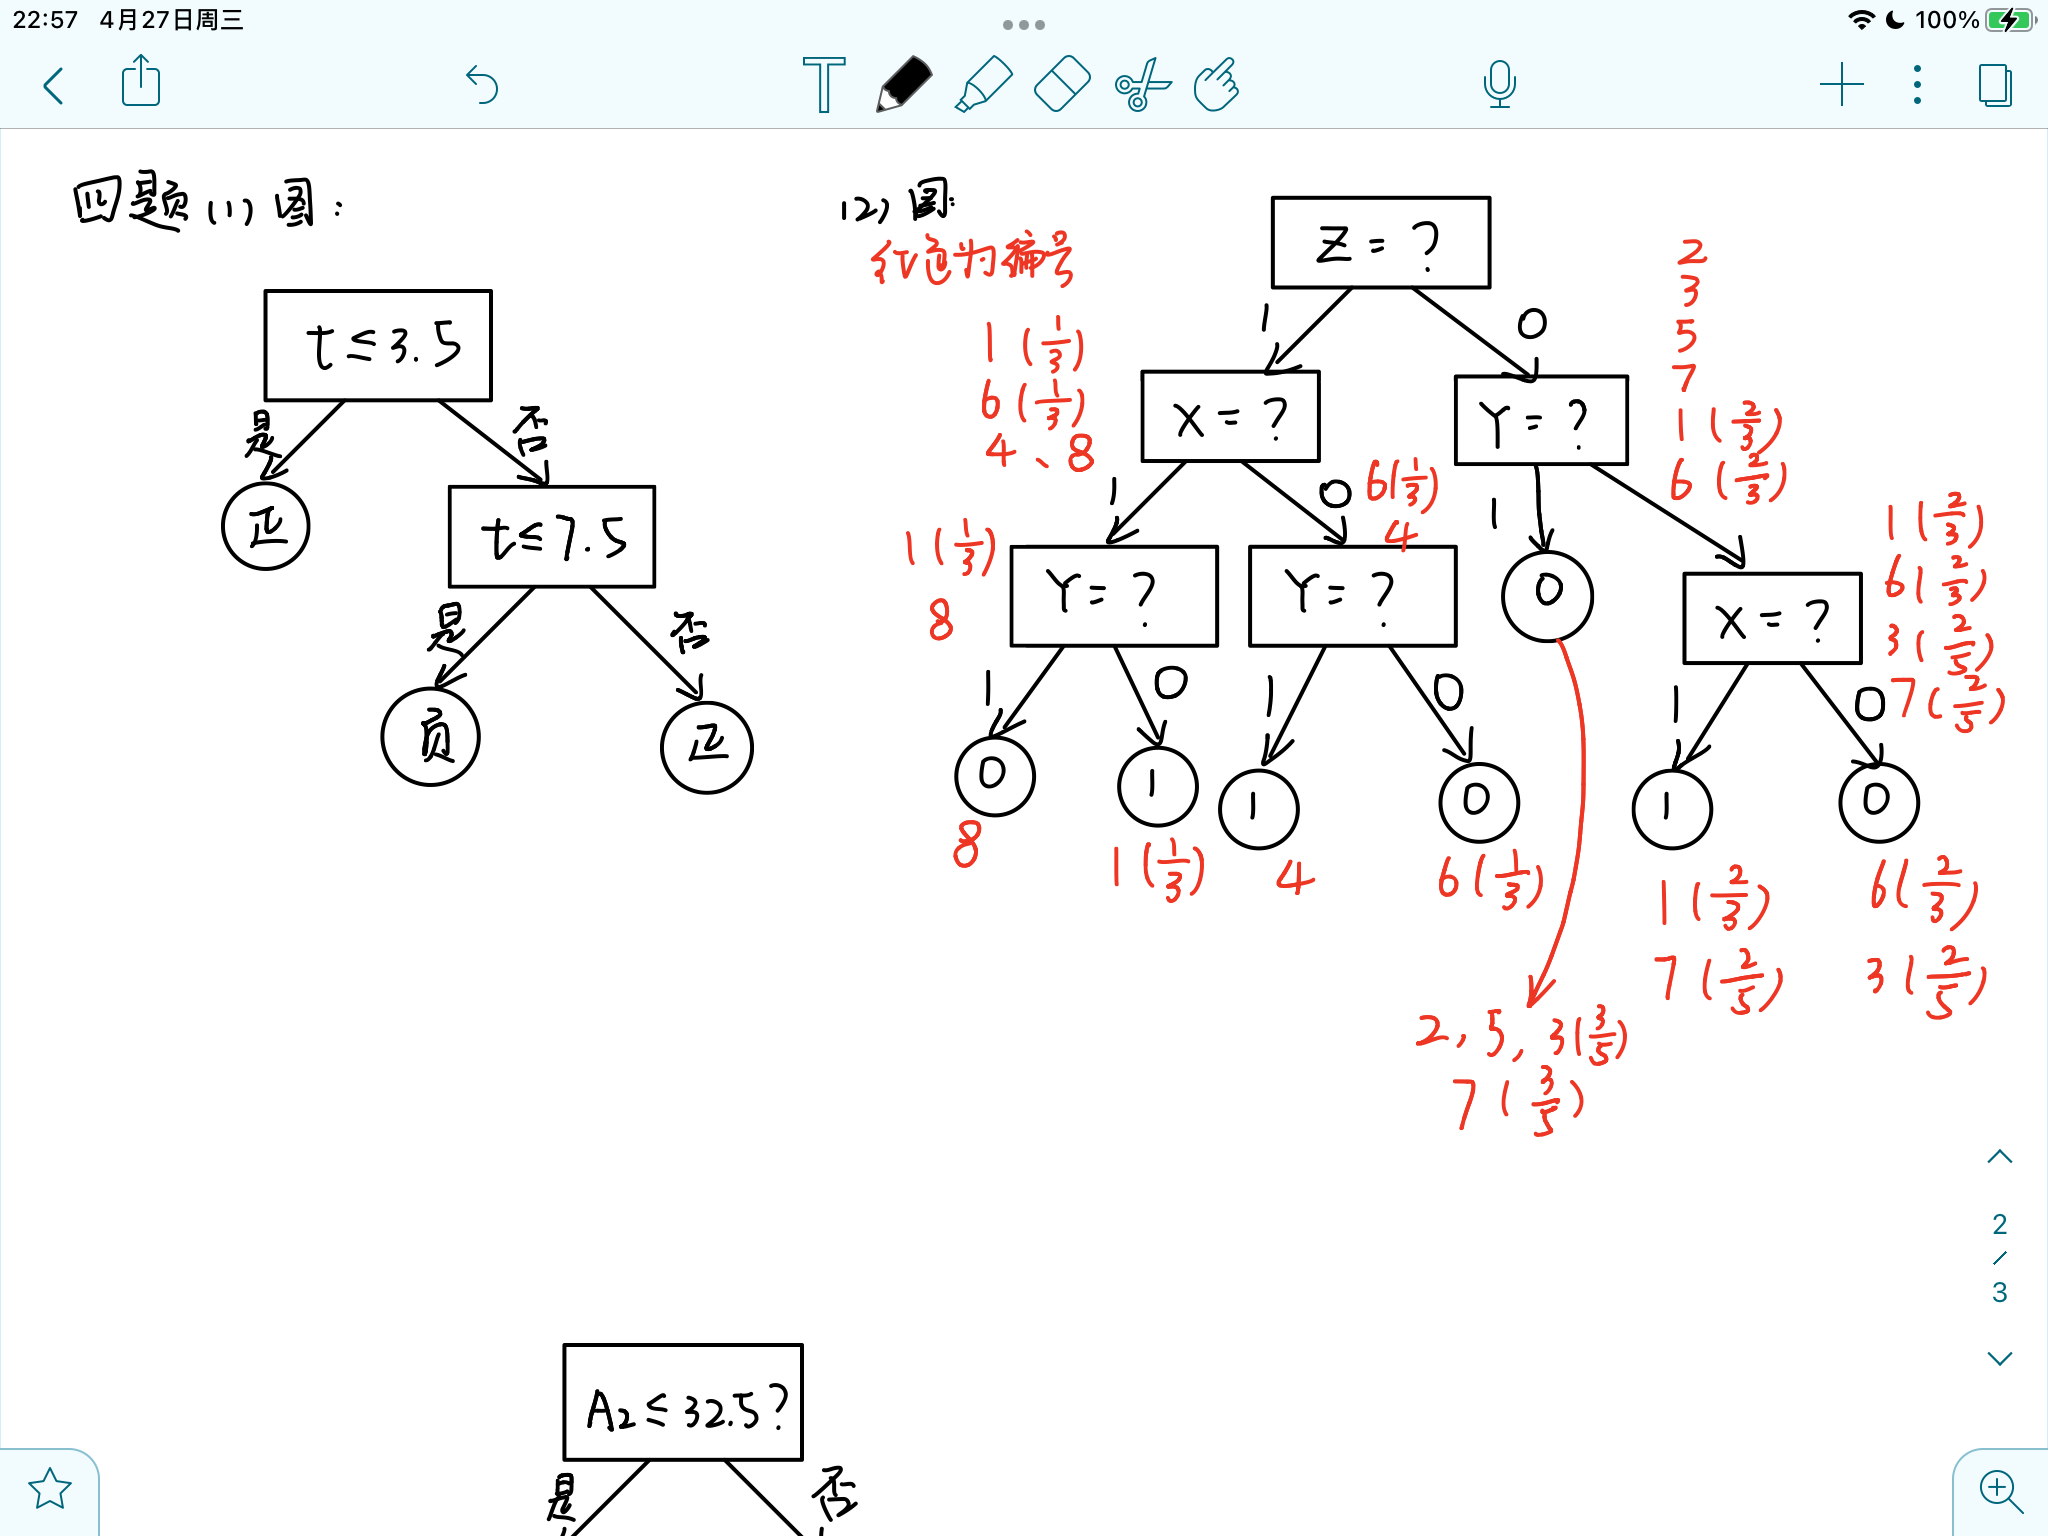 22:57 4月27日周三
100%
T
四题(1)图:
(2)图:
红色为编号
t ≤ 3.5
是
否
正
t ≤ 7.5
是
否
负
正
Z = ?
1
0
1 (1/3)
6 (1/3)
4、8
2
3
5
7
1 (2/3)
6 (2/3)
X = ?
Y = ?
1
0
6(1/3)
4
1
1 (1/3)
8
1 (2/3)
6 (2/3)
3 (2/5)
7 (2/5)
Y = ?
Y = ?
0
X = ?
1
0
1
0
1
0
0
1
1
0
1
0
8
1 (1/3)
4
6 (1/3)
1 (2/3)
7 (2/5)
6 (2/3)
3 (2/5)
2, 5, 3(3/5)
7 (3/5)
2
/
3
A2 ≤ 32.5?
是
否